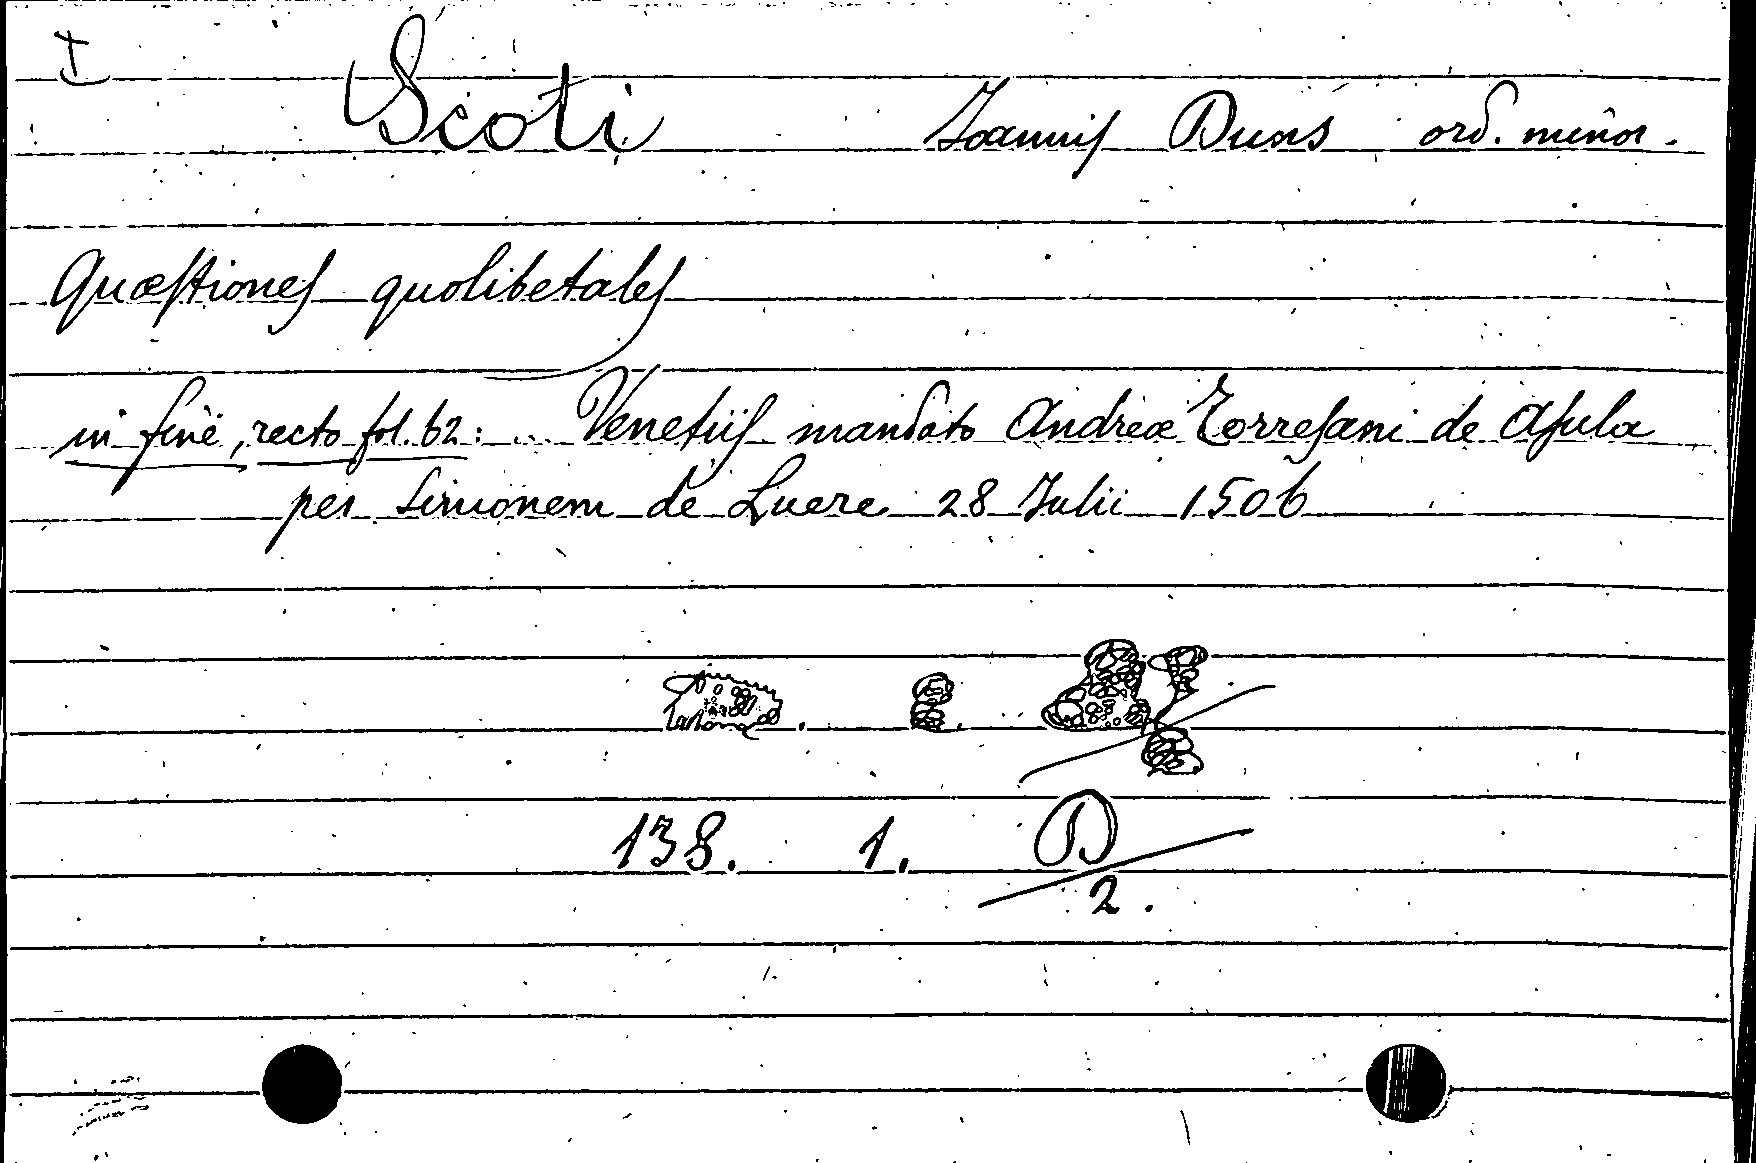 I
Scoti Joannis Duns ord. minor.
Quæstiones quolibetales
in fine, recto fol. 62: ... Venetiis mandato Andreæ Torresani de Asula
per Simonem de Luere 28 Julii 1506
138. 1. D/2.